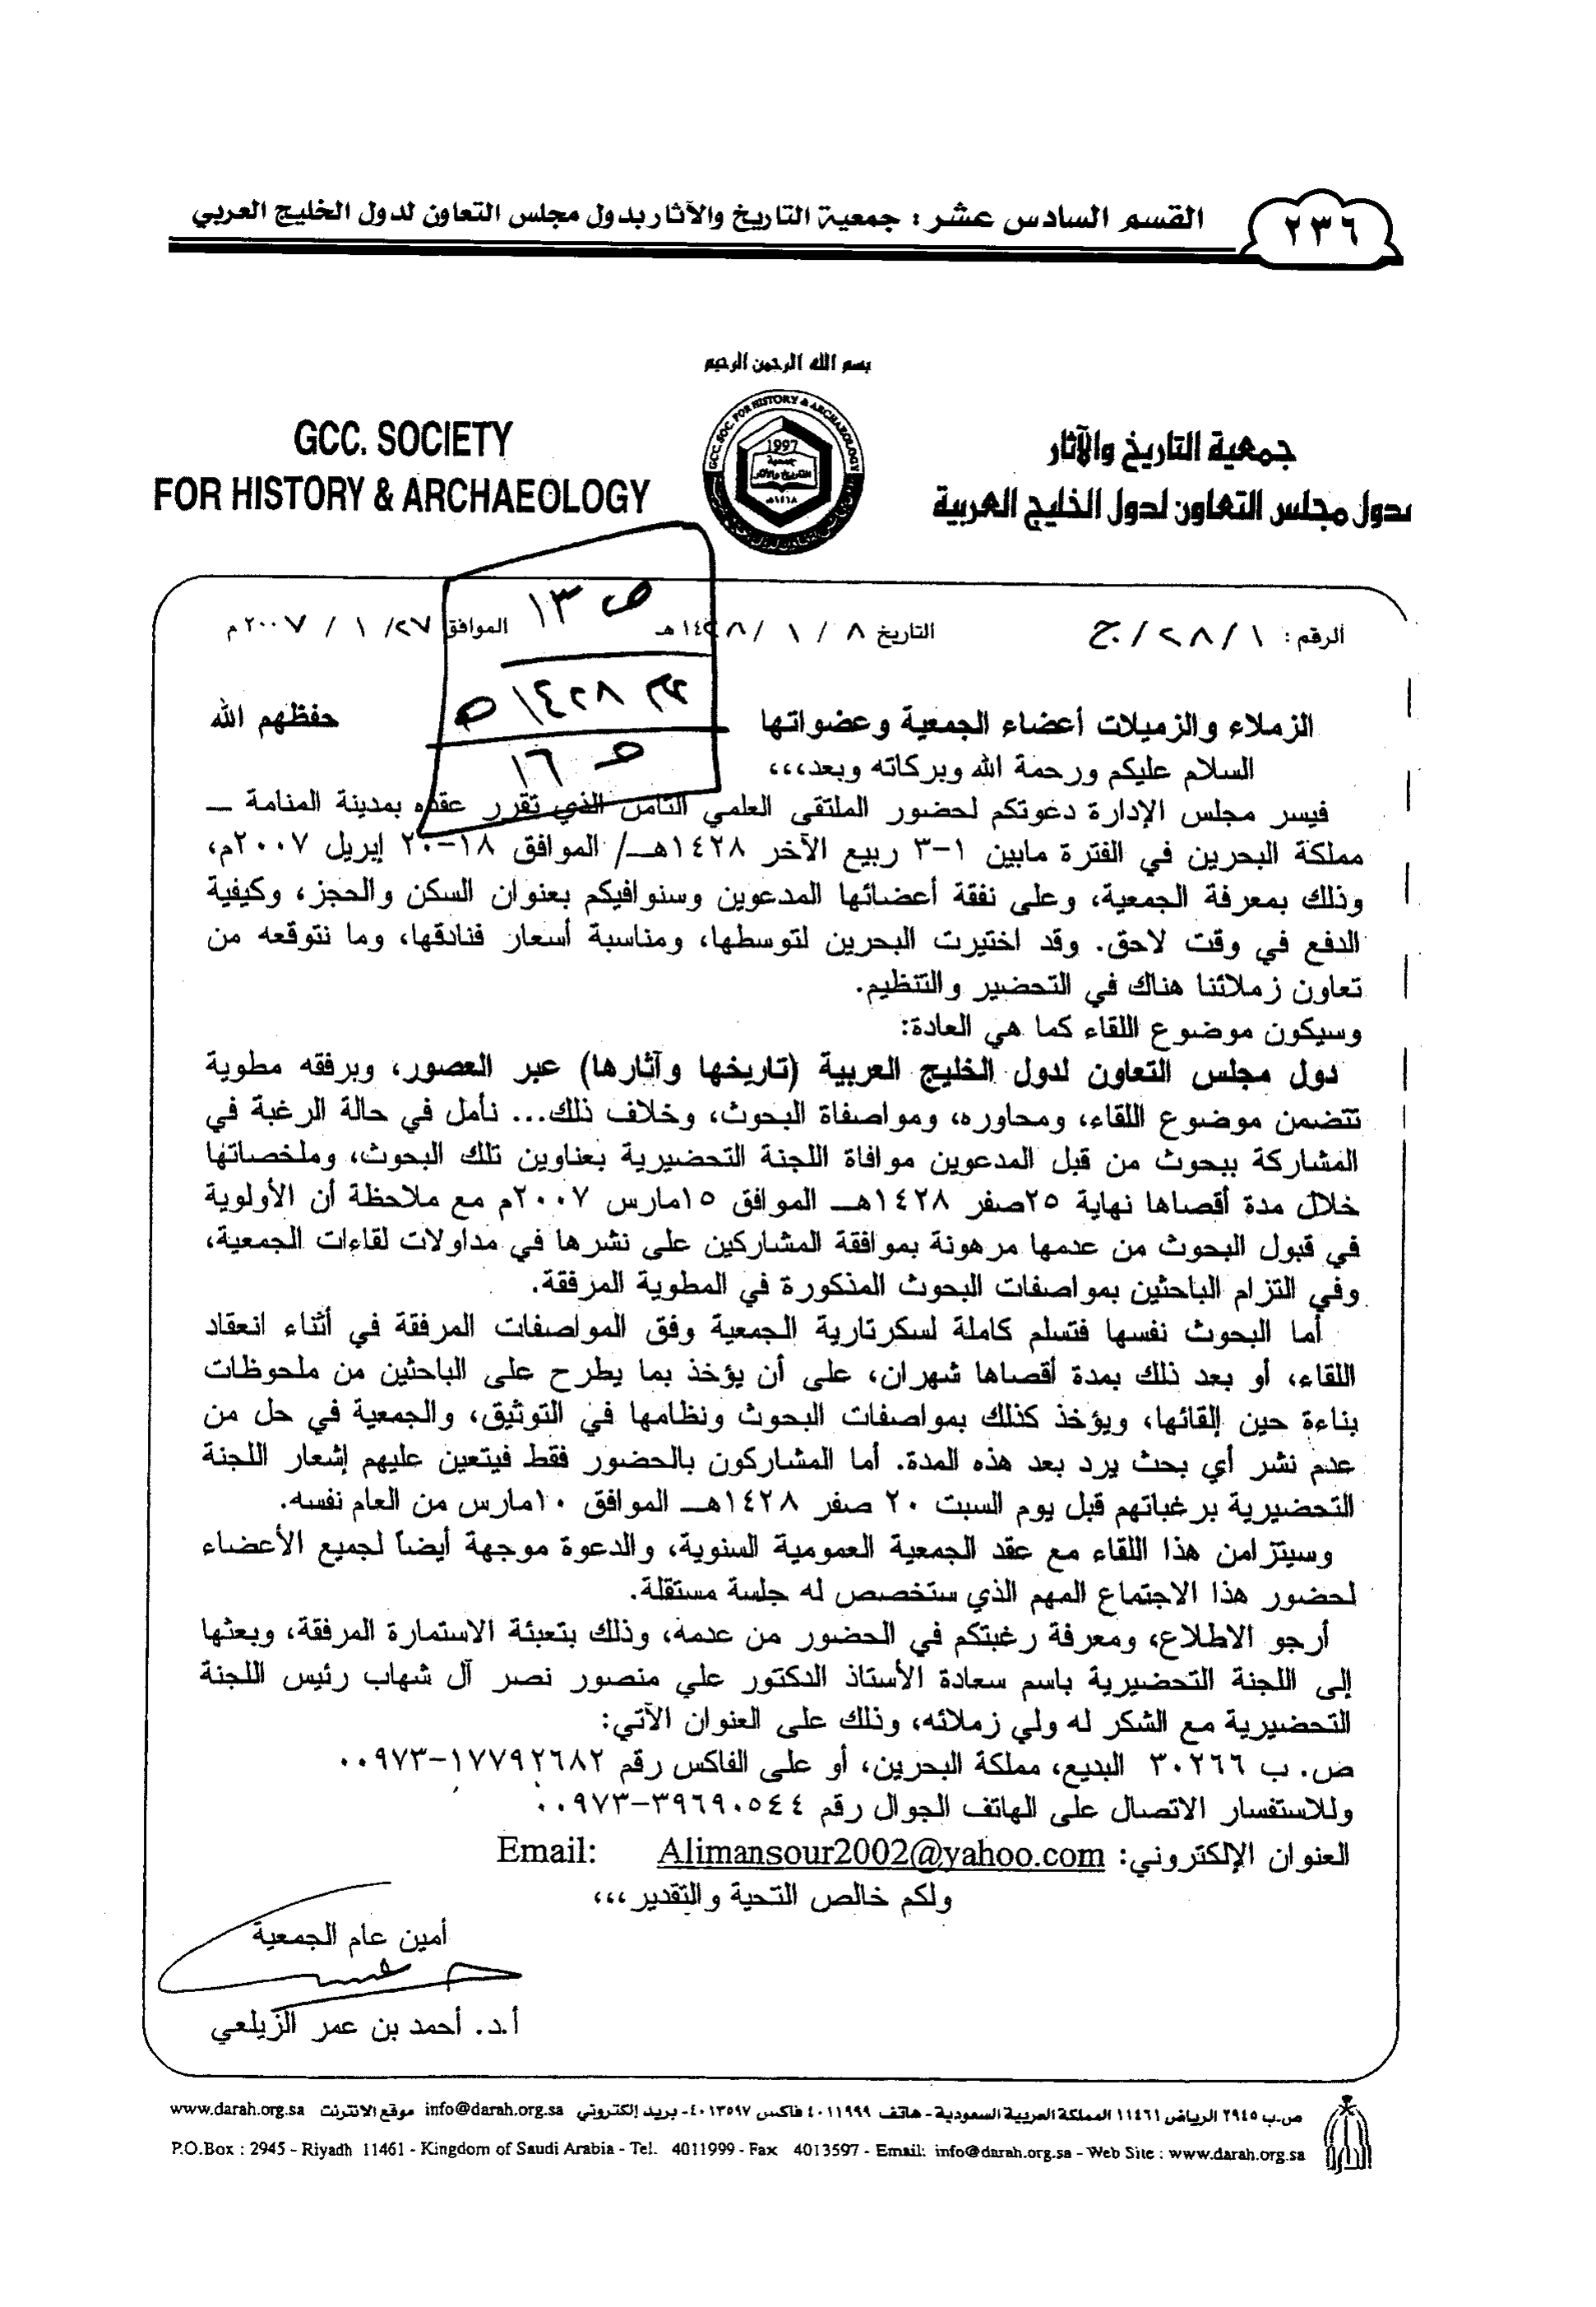 ٢٣٦
القسم السادس عشر : جمعية التاريخ والآثار بدول مجلس التعاون لدول الخليج العربي
بسم الله الرحمن الرحيم
جمعية التاريخ والآثار
بدول مجلس التعاون لدول الخليج العربية
GCC. SOCIETY
FOR HISTORY & ARCHAEOLOGY
GCC. SOC. FOR HISTORY & ARCHAEOLOGY
1997
جمعية
التاريخ والآثار
١٤١٨هـ
الرقم : ٢٨/١/ج
التاريخ ٨ / ١ /١٤٢٨هـ
الموافق ٢٧/ ١ / ٢٠٠٧م
ص ١٣
١٤٢٨
ص ١٦
الزملاء والزميلات أعضاء الجمعية وعضواتها حفظهم الله
السلام عليكم ورحمة الله وبركاته وبعد،،،
فيسر مجلس الإدارة دعوتكم لحضور الملتقى العلمي الثامن الذي تقرر عقده بمدينة المنامة ــ
مملكة البحرين في الفترة مابين ١-٣ ربيع الآخر ١٤٢٨هـــ/ الموافق ١٨-٢٠ إبريل ٢٠٠٧م،
وذلك بمعرفة الجمعية، وعلى نفقة أعضائها المدعوين وسنوافيكم بعنوان السكن والحجز، وكيفية
الدفع في وقت لاحق. وقد اختيرت البحرين لتوسطها، ومناسبة أسعار فنادقها، وما نتوقعه من
تعاون زملائنا هناك في التحضير والتنظيم.
وسيكون موضوع اللقاء كما هي العادة:
دول مجلس التعاون لدول الخليج العربية (تاريخها وآثارها) عبر العصور، وبرفقه مطوية
تتضمن موضوع اللقاء، ومحاوره، ومواصفاة البحوث، وخلاف ذلك... نأمل في حالة الرغبة في
المشاركة ببحوث من قبل المدعوين موافاة اللجنة التحضيرية بعناوين تلك البحوث، وملخصاتها
خلال مدة أقصاها نهاية ٢٥صفر ١٤٢٨هـــ الموافق ١٥مارس ٢٠٠٧م مع ملاحظة أن الأولوية
في قبول البحوث من عدمها مرهونة بموافقة المشاركين على نشرها في مداولات لقاءات الجمعية،
وفي التزام الباحثين بمواصفات البحوث المذكورة في المطوية المرفقة.
أما البحوث نفسها فتسلم كاملة لسكرتارية الجمعية وفق المواصفات المرفقة في أثناء انعقاد
اللقاء، أو بعد ذلك بمدة أقصاها شهران، على أن يؤخذ بما يطرح على الباحثين من ملحوظات
بناءة حين إلقائها، ويؤخذ كذلك بمواصفات البحوث ونظامها في التوثيق، والجمعية في حل من
عدم نشر أي بحث يرد بعد هذه المدة. أما المشاركون بالحضور فقط فيتعين عليهم إشعار اللجنة
التحضيرية برغباتهم قبل يوم السبت ٢٠ صفر ١٤٢٨هـــ الموافق ١٠مارس من العام نفسه.
وسيتزامن هذا اللقاء مع عقد الجمعية العمومية السنوية، والدعوة موجهة أيضاً لجميع الأعضاء
لحضور هذا الاجتماع المهم الذي ستخصص له جلسة مستقلة.
أرجو الاطلاع، ومعرفة رغبتكم في الحضور من عدمه، وذلك بتعبئة الاستمارة المرفقة، وبعثها
إلى اللجنة التحضيرية باسم سعادة الأستاذ الدكتور علي منصور نصر آل شهاب رئيس اللجنة
التحضيرية مع الشكر له ولي زملائه، وذلك على العنوان الآتي:
ص. ب ٣٠٢٦٦ البديع، مملكة البحرين، أو على الفاكس رقم ١٧٧٩٢٦٨٢-٠٠٩٧٣
وللاستفسار الاتصال على الهاتف الجوال رقم ٣٩٦٩٠٥٤٤-٠٠٩٧٣
العنوان الإلكتروني: Alimansour2002@yahoo.com Email:
ولكم خالص التحية والتقدير،،،
أمين عام الجمعية
أ.د. أحمد بن عمر الزيلعي
ص.ب ٢٩٤٥ الرياض ١١٤٦١ المملكة العربية السعودية - هاتف ٤٠١١٩٩٩ فاكس ٤٠١٣٥٩٧- بريد إلكتروني info@darah.org.sa موقع الانترنت www.darah.org.sa
P.O.Box : 2945 - Riyadh 11461 - Kingdom of Saudi Arabia - Tel. 4011999 - Fax 4013597 - Email: info@darah.org.sa - Web Site : www.darah.org.sa